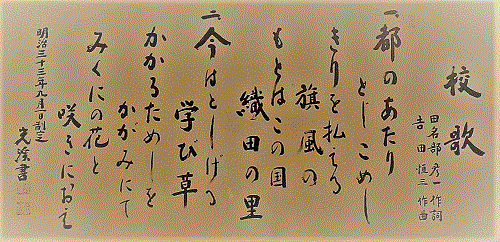 校歌
田名部彦一作詞
吉田恒三作曲
一、都のあたり
とじこめし
きりを払える
旗風の
もとはこの国
織田の里
二、今はとしげる
学び草
かかるためしを
かがみにて
みくにの花と
咲きにおえ
明治三十三年九月一日制定
光渓書